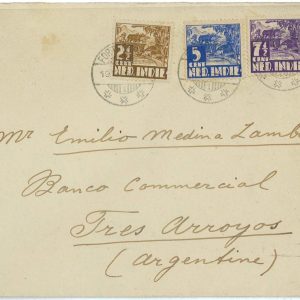 2½ CENT 5 CENT 7½ CENT
NED. INDIE NED. INDIE NED. INDIE
Mr Emilio Medina Zamb
Banco Commercial
Tres Arroyos
(Argentine)